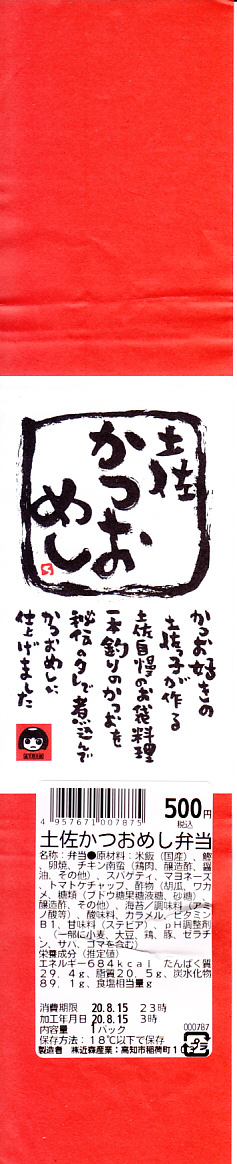 土佐
かつお
めし
かつお好きの
土佐子が作る
土佐自慢のお袋料理
一本釣りのかつおを
秘伝のタレで煮込んで
かつおめしに
仕上げました
4 957671 007875
500円
税込
土佐かつおめし弁当
名称：弁当●原材料：米飯（国産）、鰹
、卵焼、チキン南蛮（鶏肉、醸造酢、醤
油、その他）、スパゲティ、マヨネーズ
、トマトケチャップ、酢物（胡瓜、ワカ
メ、糖類（ブドウ糖果糖液糖、砂糖）、
醸造酢、その他）、海苔／調味料（アミ
ノ酸等）、酸味料、カラメル、ビタミン
B1、甘味料（ステビア）、pH調整剤
、（一部に小麦、大豆、鶏、豚、ゼラチ
ン、サバ、ゴマを含む）
栄養成分（推定値）
エネルギー684kcal たんぱく質
29.4g、脂質20.5g、炭水化物
89.1g、食塩相当量g
消費期限 20.8.15 23時
加工年月日 20.8.15 3時
内容量 1パック
000787
保存方法：18℃以下で保存
製造者 ㈱近森産業：高知市稲荷町10
プラ